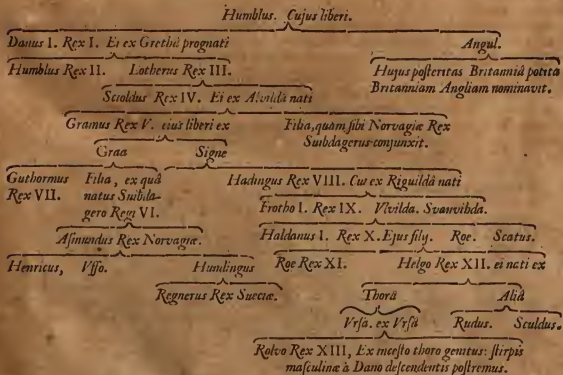 Humblus. Cujus liberi.
Danus I. Rex I. Ei ex Grethâ prognati
Angul.
Humblus Rex II. Lotherus Rex III.
Hujus posteritas Britanniâ potita
Britanniam Angliam nominavit.
Scioldus Rex IV. Ei ex Alvildâ nati
Gramus Rex V. ejus liberi ex
Filia, quam sibi Norvagiæ Rex
Suibdagerus conjunxit.
Graa Signe
Guthormus Filia, ex quâ
Rex VII. natus Suibda-
gero Regi VI.
Hadingus Rex VIII. Cui ex Riguildâ nati
Frotho I. Rex IX. Vlvilda. Svanvihda.
Asmundus Rex Norvagiæ.
Haldanus I. Rex X. Ejus filij. Roe. Scatus.
Henricus, Vffo. Hundingus
Roe Rex XI. Helgo Rex XII. ei nati ex
Regnerus Rex Sueciæ.
Thorâ Aliâ
Vrsa. ex Vrsâ Rudus. Sculdus.
Rolvo Rex XIII, Ex incesto thoro genitus: stirpis
masculinæ à Dano descendentis postremus.